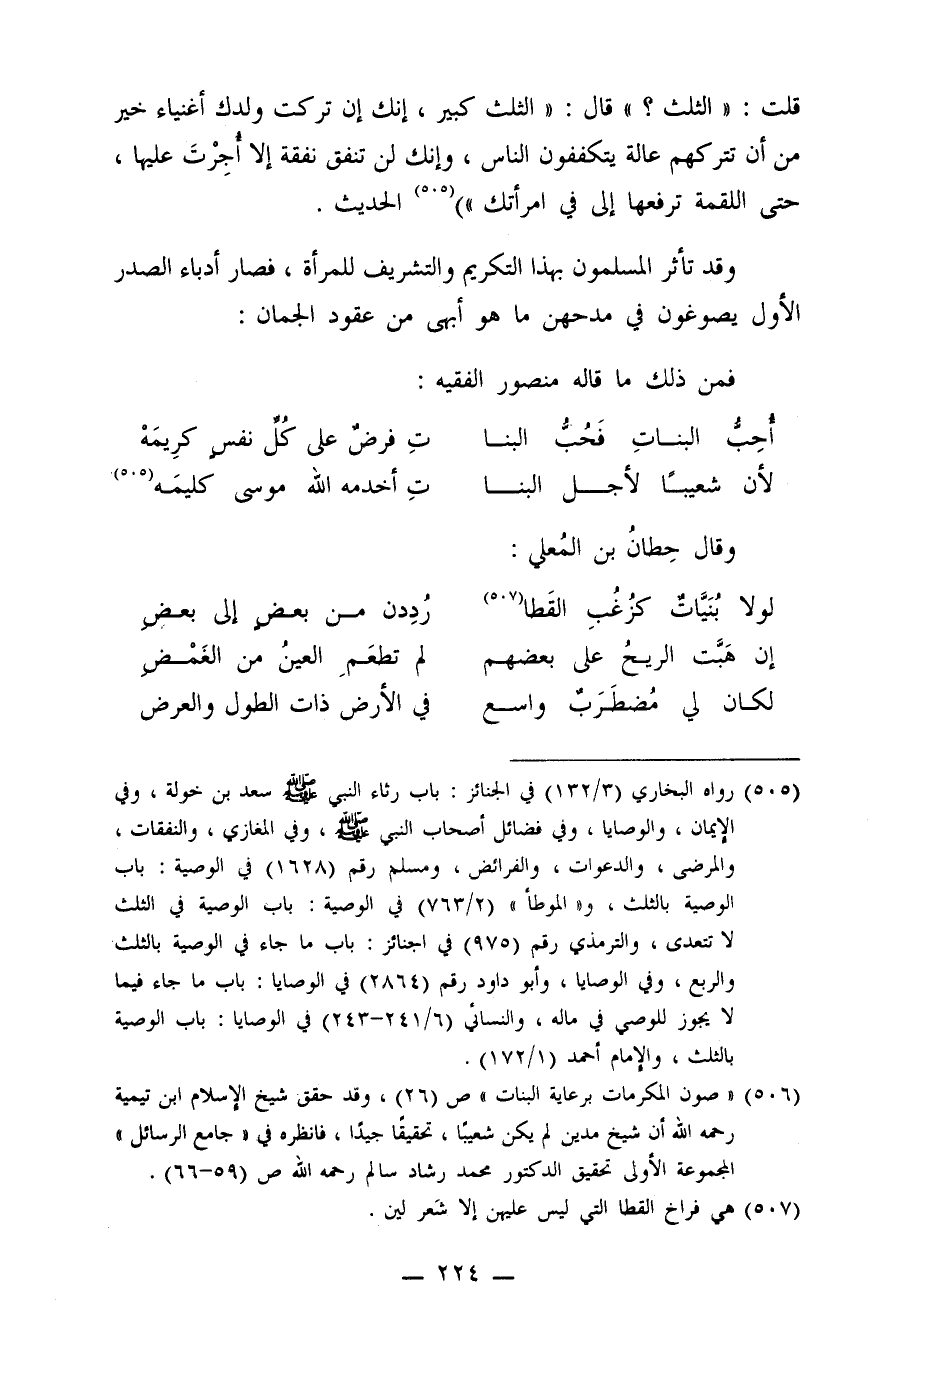 قلت : « الثلث ؟ » قال : « الثلث كبير ، إنك إن تركت ولدك أغنياء خير
من أن تتركهم عالة يتكففون الناس ، وإنك لن تنفق نفقة إلا أُجِرْتَ عليها ،
حتى اللقمة ترفعها إلى في امرأتك »)(٥٠٥) الحديث .
وقد تأثر المسلمون بهذا التكريم والتشريف للمرأة ، فصار أدباء الصدر
الأول يصوغون في مدحهن ما هو أبهى من عقود الجمان :
فمن ذلك ما قاله منصور الفقيه :
أُحِبُّ البنــاتِ فَحُبُّ البنــا تِ فرضٌ على كُلِّ نفسٍ كرِيمَهْ
لأن شعيبــًا لأجــل البنــا تِ أخدمه الله موسى كليمَه(٥٠٥)
وقال حِطانُ بن المُعلي :
لولا بُنَيَّاتٌ كزُغْبِ القَطا(٥٠٧) رُدِدن مــن بعــضٍ إلى بعــضِ
إن هَبَّت الريــحُ على بعضهــم لم تطعَــمِ العينُ من الغَمْــضِ
لكــان لي مُضطَــرَبٌ واســع في الأرض ذات الطول والعرض
(٥٠٥) رواه البخاري (١٣٢/٣) في الجنائز : باب رثاء النبي ﷺ سعد بن خولة ، وفي
الإيمان ، والوصايا ، وفي فضائل أصحاب النبي ﷺ ، وفي المغازي ، والنفقات ،
والمرضى ، والدعوات ، والفرائض ، ومسلم رقم (١٦٢٨) في الوصية : باب
الوصية بالثلث ، و« الموطأ » (٧٦٣/٢) في الوصية : باب الوصية في الثلث
لا تتعدى ، والترمذي رقم (٩٧٥) في اجنائز : باب ما جاء في الوصية بالثلث
والربع ، وفي الوصايا ، وأبو داود رقم (٢٨٦٤) في الوصايا : باب ما جاء فيما
لا يجوز للوصي في ماله ، والنسائي (٢٤١/٦–٢٤٣) في الوصايا : باب الوصية
بالثلث ، والإمام أحمد (١٧٢/١) .
(٥٠٦) « صون المكرمات برعاية البنات » ص (٢٦) ، وقد حقق شيخ الإسلام ابن تيمية
رحمه الله أن شيخ مدين لم يكن شعيبًا ، تحقيقًا جيدًا ، فانظره في « جامع الرسائل »
المجموعة الأولى تحقيق الدكتور محمد رشاد سالم رحمه الله ص (٥٩–٦٦) .
(٥٠٧) هي فراخ القطا التي ليس عليهن إلا شَعر لين .
— ٢٢٤ —